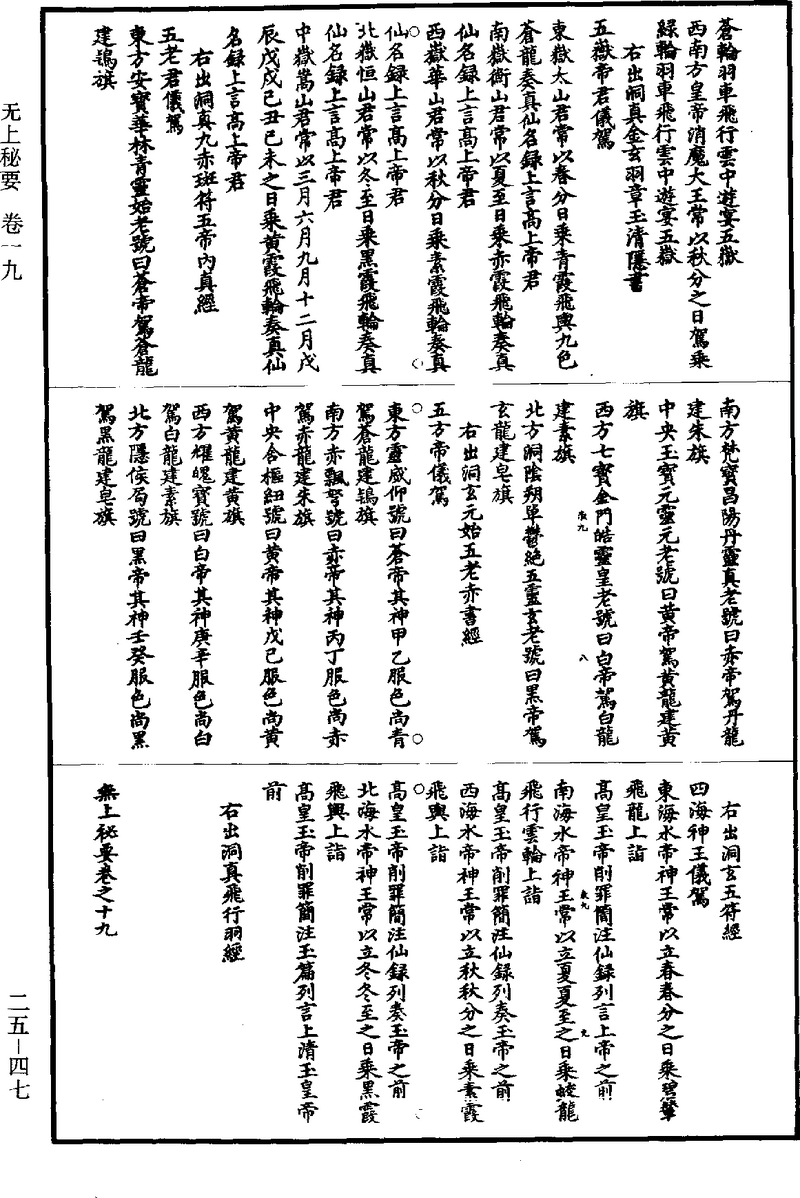 蒼輪羽車飛行雲中遊宴五嶽
西南方皇帝消魔大王常以秋分之日駕乘
緑輪羽車飛行雲中遊宴五嶽
右出洞真金玄羽章玉清隱書
五嶽帝君儀駕
東嶽太山君常以春分日乘青霞飛輿九色
蒼龍奏真仙名録上言高上帝君
南嶽衡山君常以夏至日乘赤霞飛輪奏真
仙名録上言高上帝君
西嶽華山君常以秋分日乘素霞飛輪奏真
仙名録上言高上帝君
北嶽恒山君常以冬至日乘黑霞飛輪奏真
仙名録上言高上帝君
中嶽嵩山君常以三月六月九月十二月戊
辰戊戌己丑己未之日乘黄霞飛輪奏真仙
名録上言高上帝君
右出洞真九赤斑符五帝內真經
五老君儀駕
東方安寶華林青靈始老號曰蒼帝駕蒼龍
建鶉旗
南方梵寶昌陽丹靈真老號曰赤帝駕丹龍
建朱旗
中央玉寶元靈元老號曰黄帝駕黄龍建黄
旗
西方七寶金門皓靈皇老號曰白帝駕白龍
建素旗
北方洞陰朔單鬱絕五靈玄老號曰黑帝駕
玄龍建皂旗
右出洞玄元始五老赤書經
五方帝儀駕
東方靈威仰號曰蒼帝其神甲乙服色尚青
駕蒼龍建鶉旗
南方赤飄弩號曰赤帝其神丙丁服色尚赤
駕赤龍建朱旗
中央含樞紐號曰黄帝其神戊己服色尚黄
駕黄龍建黄旗
西方耀魄寶號曰白帝其神庚辛服色尚白
駕白龍建素旗
北方隱侯局號曰黑帝其神壬癸服色尚黑
駕黑龍建皂旗
右出洞玄五符經
四海神王儀駕
東海水帝神王常以立春春分之日乘碧輦
飛龍上詣
高皇玉帝削罪簡注仙録列言上帝之前
南海水帝神王常以立夏夏至之日乘蛟龍
飛行雲輪上詣
高皇玉帝削罪簡注仙録列奏玉帝之前
西海水帝神王常以立秋秋分之日乘素霞
飛輿上詣
高皇玉帝削罪簡注仙録列奏玉帝之前
北海水帝神王常以立冬冬至之日乘黑霞
飛輿上詣
高皇玉帝削罪簡注玉篇列言上清玉皇帝
前
右出洞真飛行羽經
無上祕要卷之十九
无上秘要 卷一九
二五-四七